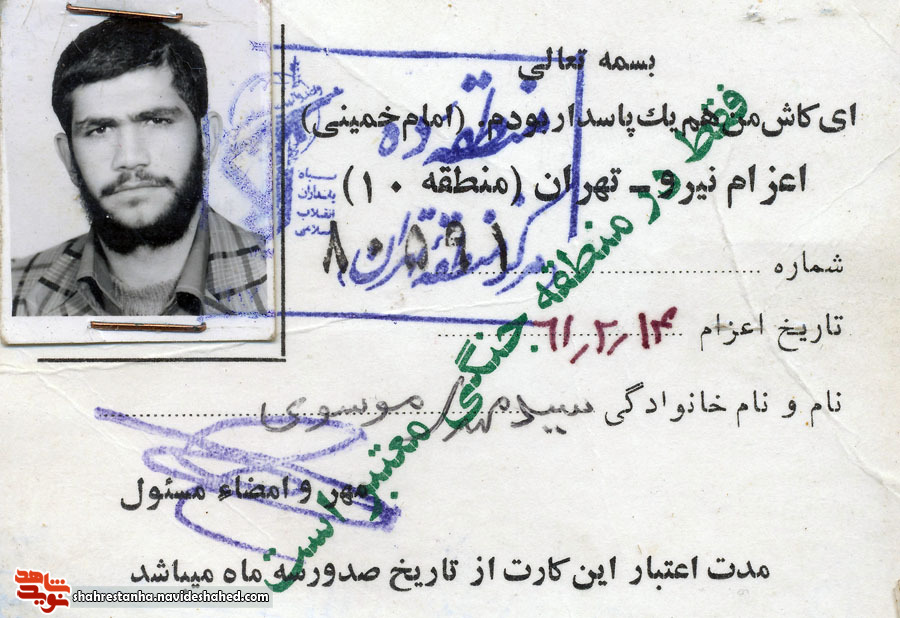 بسمه تعالی
ای کاش من هم یك پاسدار بودم. (امام خمینی)
اعزام نیرو ـ تهران (منطقه ۱۰)
شماره ۸۰۵۹۱
تاریخ اعزام ۶۱٫۲٫۱۴
نام و نام خانوادگی سید مهدی موسوی
مهر و امضاء مسئول
مدت اعتبار این کارت از تاریخ صدور سه ماه میباشد
فقط در منطقه جنگی معتبر است
منطقه ده
مرکز منطقه تهران
سپاه
پاسداران
انقلاب
اسلامی
نوید شاهد
shahrestanha.navideshahed.com